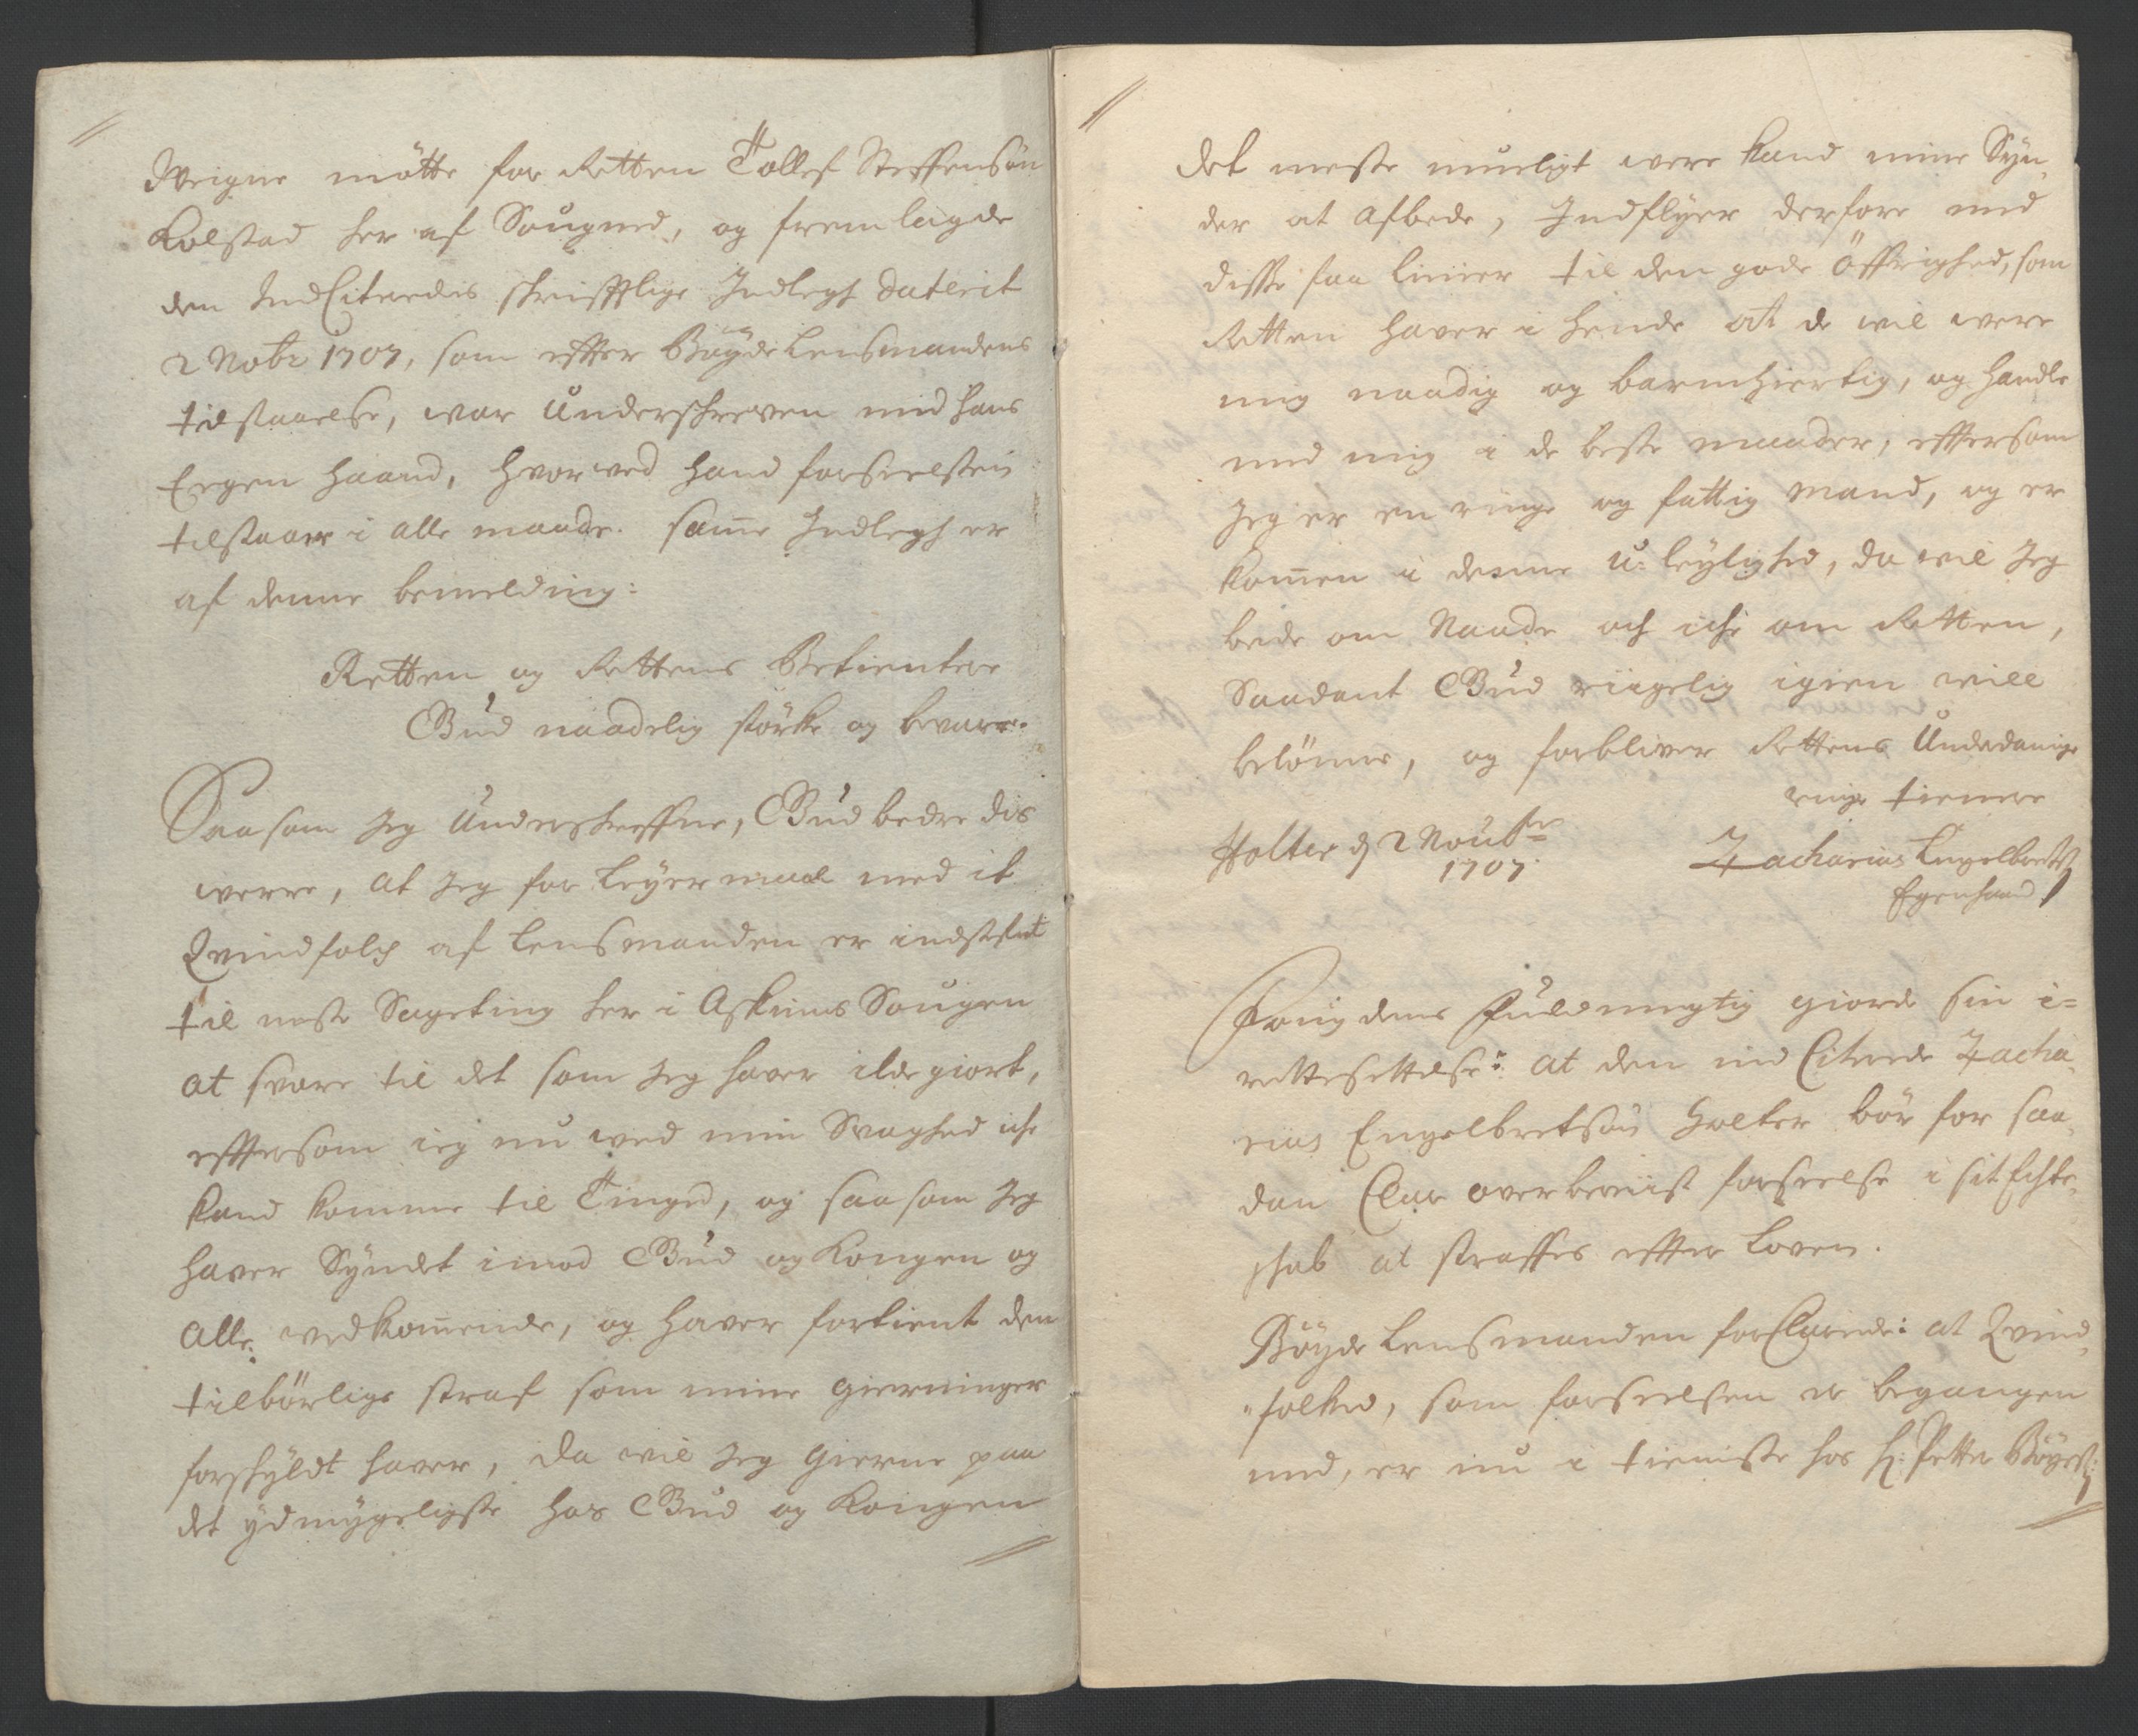 Weigne mötte for Retten Tollef Steffensön
Kolstad her af Sougned, og fremlagde
den IndCiteredis skrifftlige Indlegh daterit
2 Nobr 1707, som effter Bøyde Lensmandens
tilstaaelse, war Underschrewen med hans
Eegen haand, hvorved hand forseelsen
tilstaaer i alle maade. same Indlegh er
af denne bemelding:
Retten og Rettens Betientere
Gud naadelig störke og bevare.
Saasom Jeg Underskreffne, Gud bedre dis
werre, at Jeg for Leyermaal med it
Qvindfolch af Lensmanden er indstefnt
til neste Sageting her i Askims Sougen
at svare til det som Jeg haver ilde giort,
efftersom ieg nu wed min Svaghed iche
kand komme til Tinged, og saasom Jeg
haver Syndet imod Gud og Kongen og
alle wedkomende, og haver fortient den
tilbörlige straf som mine gierninger
forskyldt haver, da wil Jeg gierne paa
det ydmygeligste hos Gud og Kongen
det meste mueligt were kand mine Syn-
der at afbede, Indflyer derfore med
disse faa linier til den gode Öffrighed, som
Retten haver i hende at de wil were
mig naadig og barmhiertig, og handle
med mig i de beste maader, efftersom
Jeg er en ringe og fattig Mand, og er
komen i denne U-leylighed, da wil Jeg
bede om Naade och iche om Retten,
Saadant Gud riigelig igien will
belönne, og forbliver Rettens Underdanige
ringe tienere
Holter d 2 Noubr
1707.
Zacharias Engelbrets
Egenhaand
Fougdens Fuldmegtig giorde sin i=
rettesettelse: at den ind Citerede Zacha-
rias Engelbretsön Holter bör for saa-
dan Clar overbeviist forseelse i sit Echte-
skab at straffes effter Loven.
Böyde Lensmanden forClarede: at Qvind-
folked, som forseelsen er begangen
med, er nu i tieniste hos H: Petter Böyes